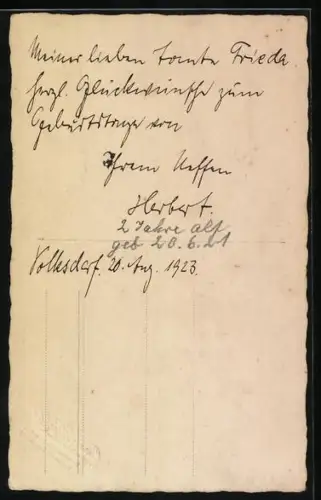 Meiner lieben Tante Frieda
herzl. Glückwünsche zum
Geburtstage von
Ihrem Neffen
Herbert.
2 Jahre alt
geb 20.6.21
Volksdorf, 20. Aug. 1923.